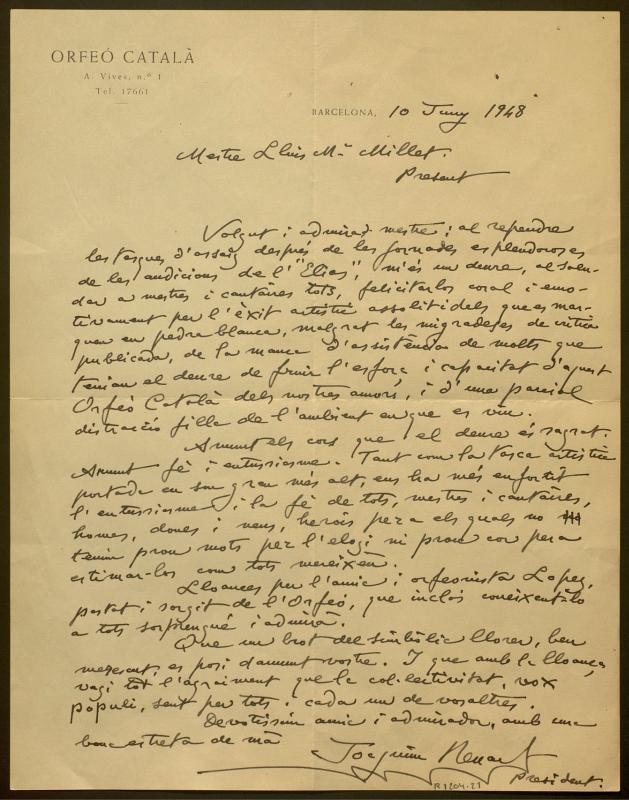 ORFEÓ CATALÀ
A. Vives, n.º 1
Tel. 17661
BARCELONA, 10 Juny 1948
Mestre Lluis Mª Millet.
Present
Volgut i admirat mestre; al rependre
les tasques d'assaig després de les jornades esplendoroses
de les audicions de l'"Elias", m'és un deure, al salu-
dar a mestres i cantaires tots, felicitarlos coral i emo-
tivament per l'èxit artístic assolit i dels que es mar-
quen en pedra blanca, malgrat les migradeses de crítica
publicada, de la manca d'assistència de molts que
tenian el deure de fruir l'esforç i capacitat d'aquest
Orfeó Català dels nostres amors, i d'una parcial
distracció filla de l'ambient en que es viu.
Amunt els cors que el deure és sagrat.
Amunt fè i entusiasme. Tant com la tasca artística
portada en son grau més alt, ens ha més enfortit
l'entusiasme i la fè de tots, mestres i cantaires,
homes, dones i nens, herois per a els quals no
tenim prou mots per l'elogi ni prou cor per a
estimar-los com tots mereixen.
Lloances per l'amic i orfeonista Lopez,
pastat i sorgit de l'Orfeó, que inclós coneixentlo
a tots sorprengué i admirà.
Que un brot del simbòlic llorer, ben
merescut, es posi damunt vostre. I que amb la lloança
vagi tot l'agraiment que la col·lectivitat, vox
populi, sent per tots i cada un de vosaltres.
Devotíssim amic i admirador, amb una
bona estreta de mà
Joaquim Renart
President.
R1204-21